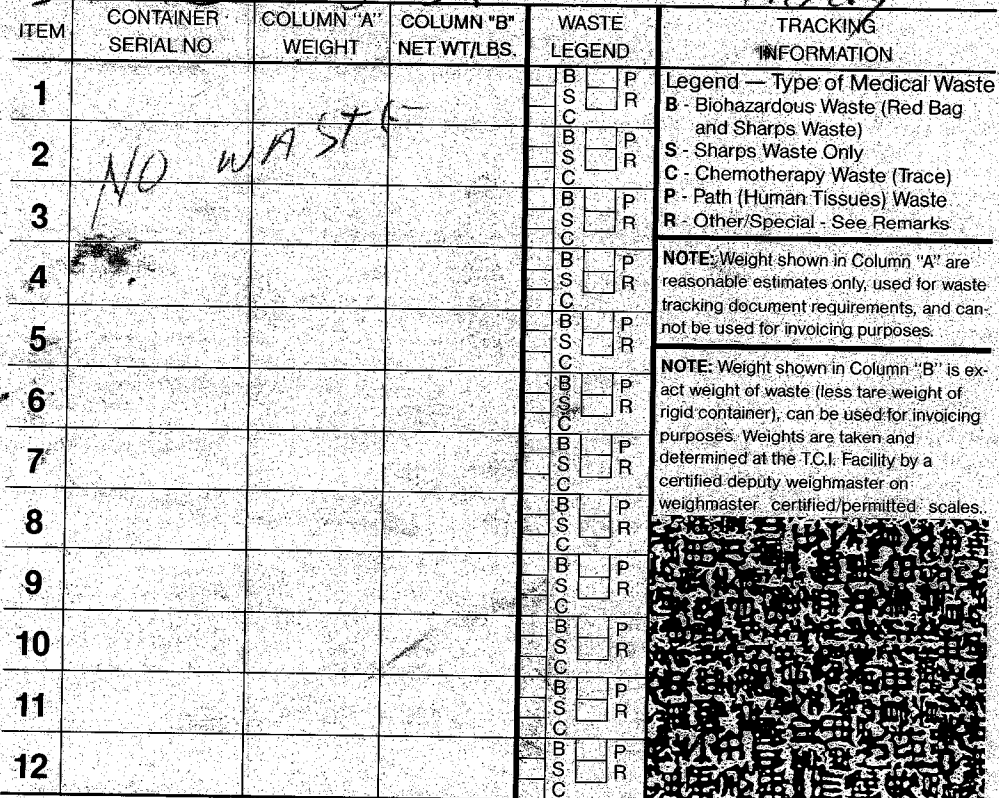 ITEM CONTAINER SERIAL NO. COLUMN "A" WEIGHT COLUMN "B" NET WT/LBS. WASTE LEGEND TRACKING INFORMATION
1 B S C P R
2 B S C P R
3 B S C P R
4 B S C P R
5 B S C P R
6 B S C P R
7 B S C P R
8 B S C P R
9 B S C P R
10 B S C P R
11 B S C P R
12 B S C P R
NO WASTE
Legend — Type of Medical Waste
B - Biohazardous Waste (Red Bag
and Sharps Waste)
S - Sharps Waste Only
C - Chemotherapy Waste (Trace)
P - Path (Human Tissues) Waste
R - Other/Special - See Remarks
NOTE: Weight shown in Column "A" are
reasonable estimates only, used for waste
tracking document requirements, and can-
not be used for invoicing purposes.
NOTE: Weight shown in Column "B" is ex-
act weight of waste (less tare weight of
rigid container), can be used for invoicing
purposes. Weights are taken and
determined at the T.C.I. Facility by a
certified deputy weighmaster on
weighmaster certified/permitted scales.